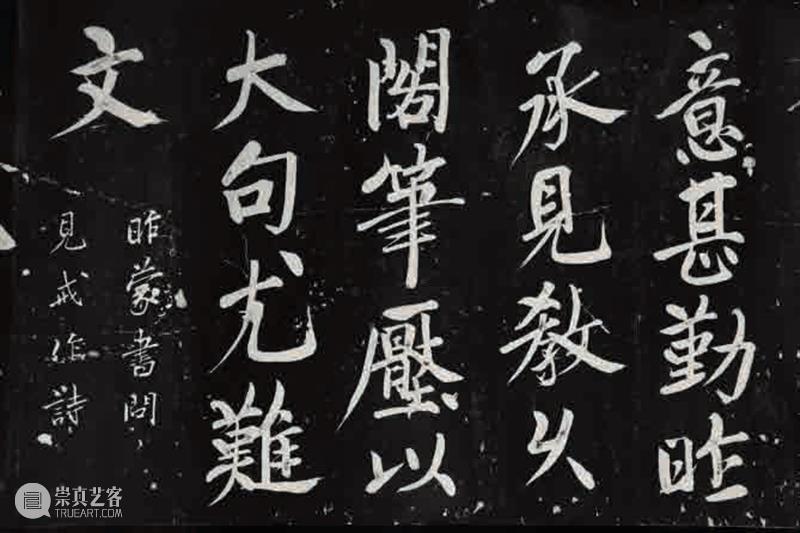 意甚勤昨
承見教久
閣筆壓以
大句尤難
文
昨蒙書問
見戒作詩
崇真艺客
TRUEART.COM